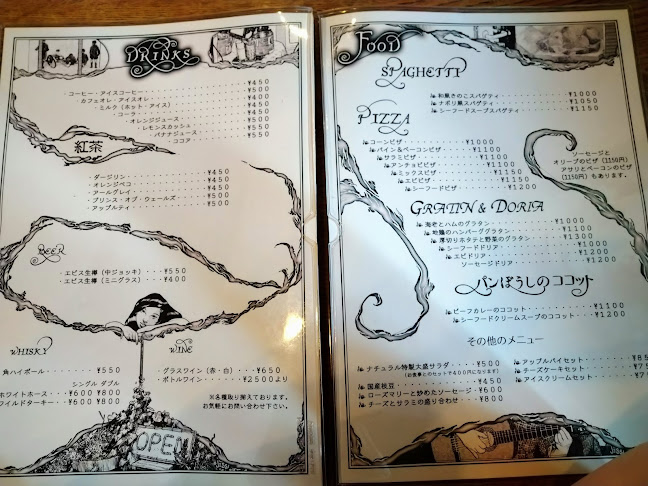 DRINKS
・コーヒー・アイスコーヒー ¥450
・カフェオレ・アイスオレ ¥500
・ミルク（ホット・アイス） ¥400
・コーラ ¥450
・オレンジジュース ¥500
・レモンスカッシュ ¥550
・バナナジュース ¥550
・ココア ¥550
紅茶
・ダージリン ¥450
・オレンジペコ ¥450
・アールグレイ ¥450
・プリンス・オブ・ウェールズ ¥500
・アップルティ ¥500
BEER
・エビス生樽（中ジョッキ） ¥550
・エビス生樽（ミニグラス） ¥400
WHISKY
角ハイボール ¥550
シングル ダブル
ホワイトホース ¥600 ¥800
ワイルドターキー ¥600 ¥800
WINE
・グラスワイン（赤・白） ¥650
・ボトルワイン ¥2500より
※各種取り揃えております。
お気軽にお問い合わせ下さい。
OPEN
FOOD
SPAGHETTI
和風きのこスパゲティ ¥1000
ナポリ風スパゲティ ¥1050
シーフードスープスパゲティ ¥1150
PIZZA
コーンピザ ¥1000
パイン＆ベーコンピザ ¥1100
サラミピザ ¥1100
アンチョビピザ ¥1100
ミックスピザ ¥1150
エビピザ ¥1150
シーフードピザ ¥1200
ソーセージと
オリーブのピザ（1150円）
アサリとベーコンのピザ
（1150円）もあります。
GRATIN & DORIA
海老とハムのグラタン ¥1000
地鶏のハンバーググラタン ¥1100
厚切りホタテと野菜のグラタン ¥1300
シーフードドリア ¥1000
エビドリア ¥1200
ソーセージドリア ¥1200
パンぼうしのココット
ビーフカレーのココット ¥1100
シーフードクリームスープのココット ¥1200
その他のメニュー
ナチュラル特製大盛サラダ ¥500
（お食事とのセットで400円になります）
国産枝豆 ¥450
ローズマリーと炒めたソーセージ ¥600
チーズとサラミの盛り合わせ ¥800
アップルパイセット
チーズケーキセット
アイスクリームセット